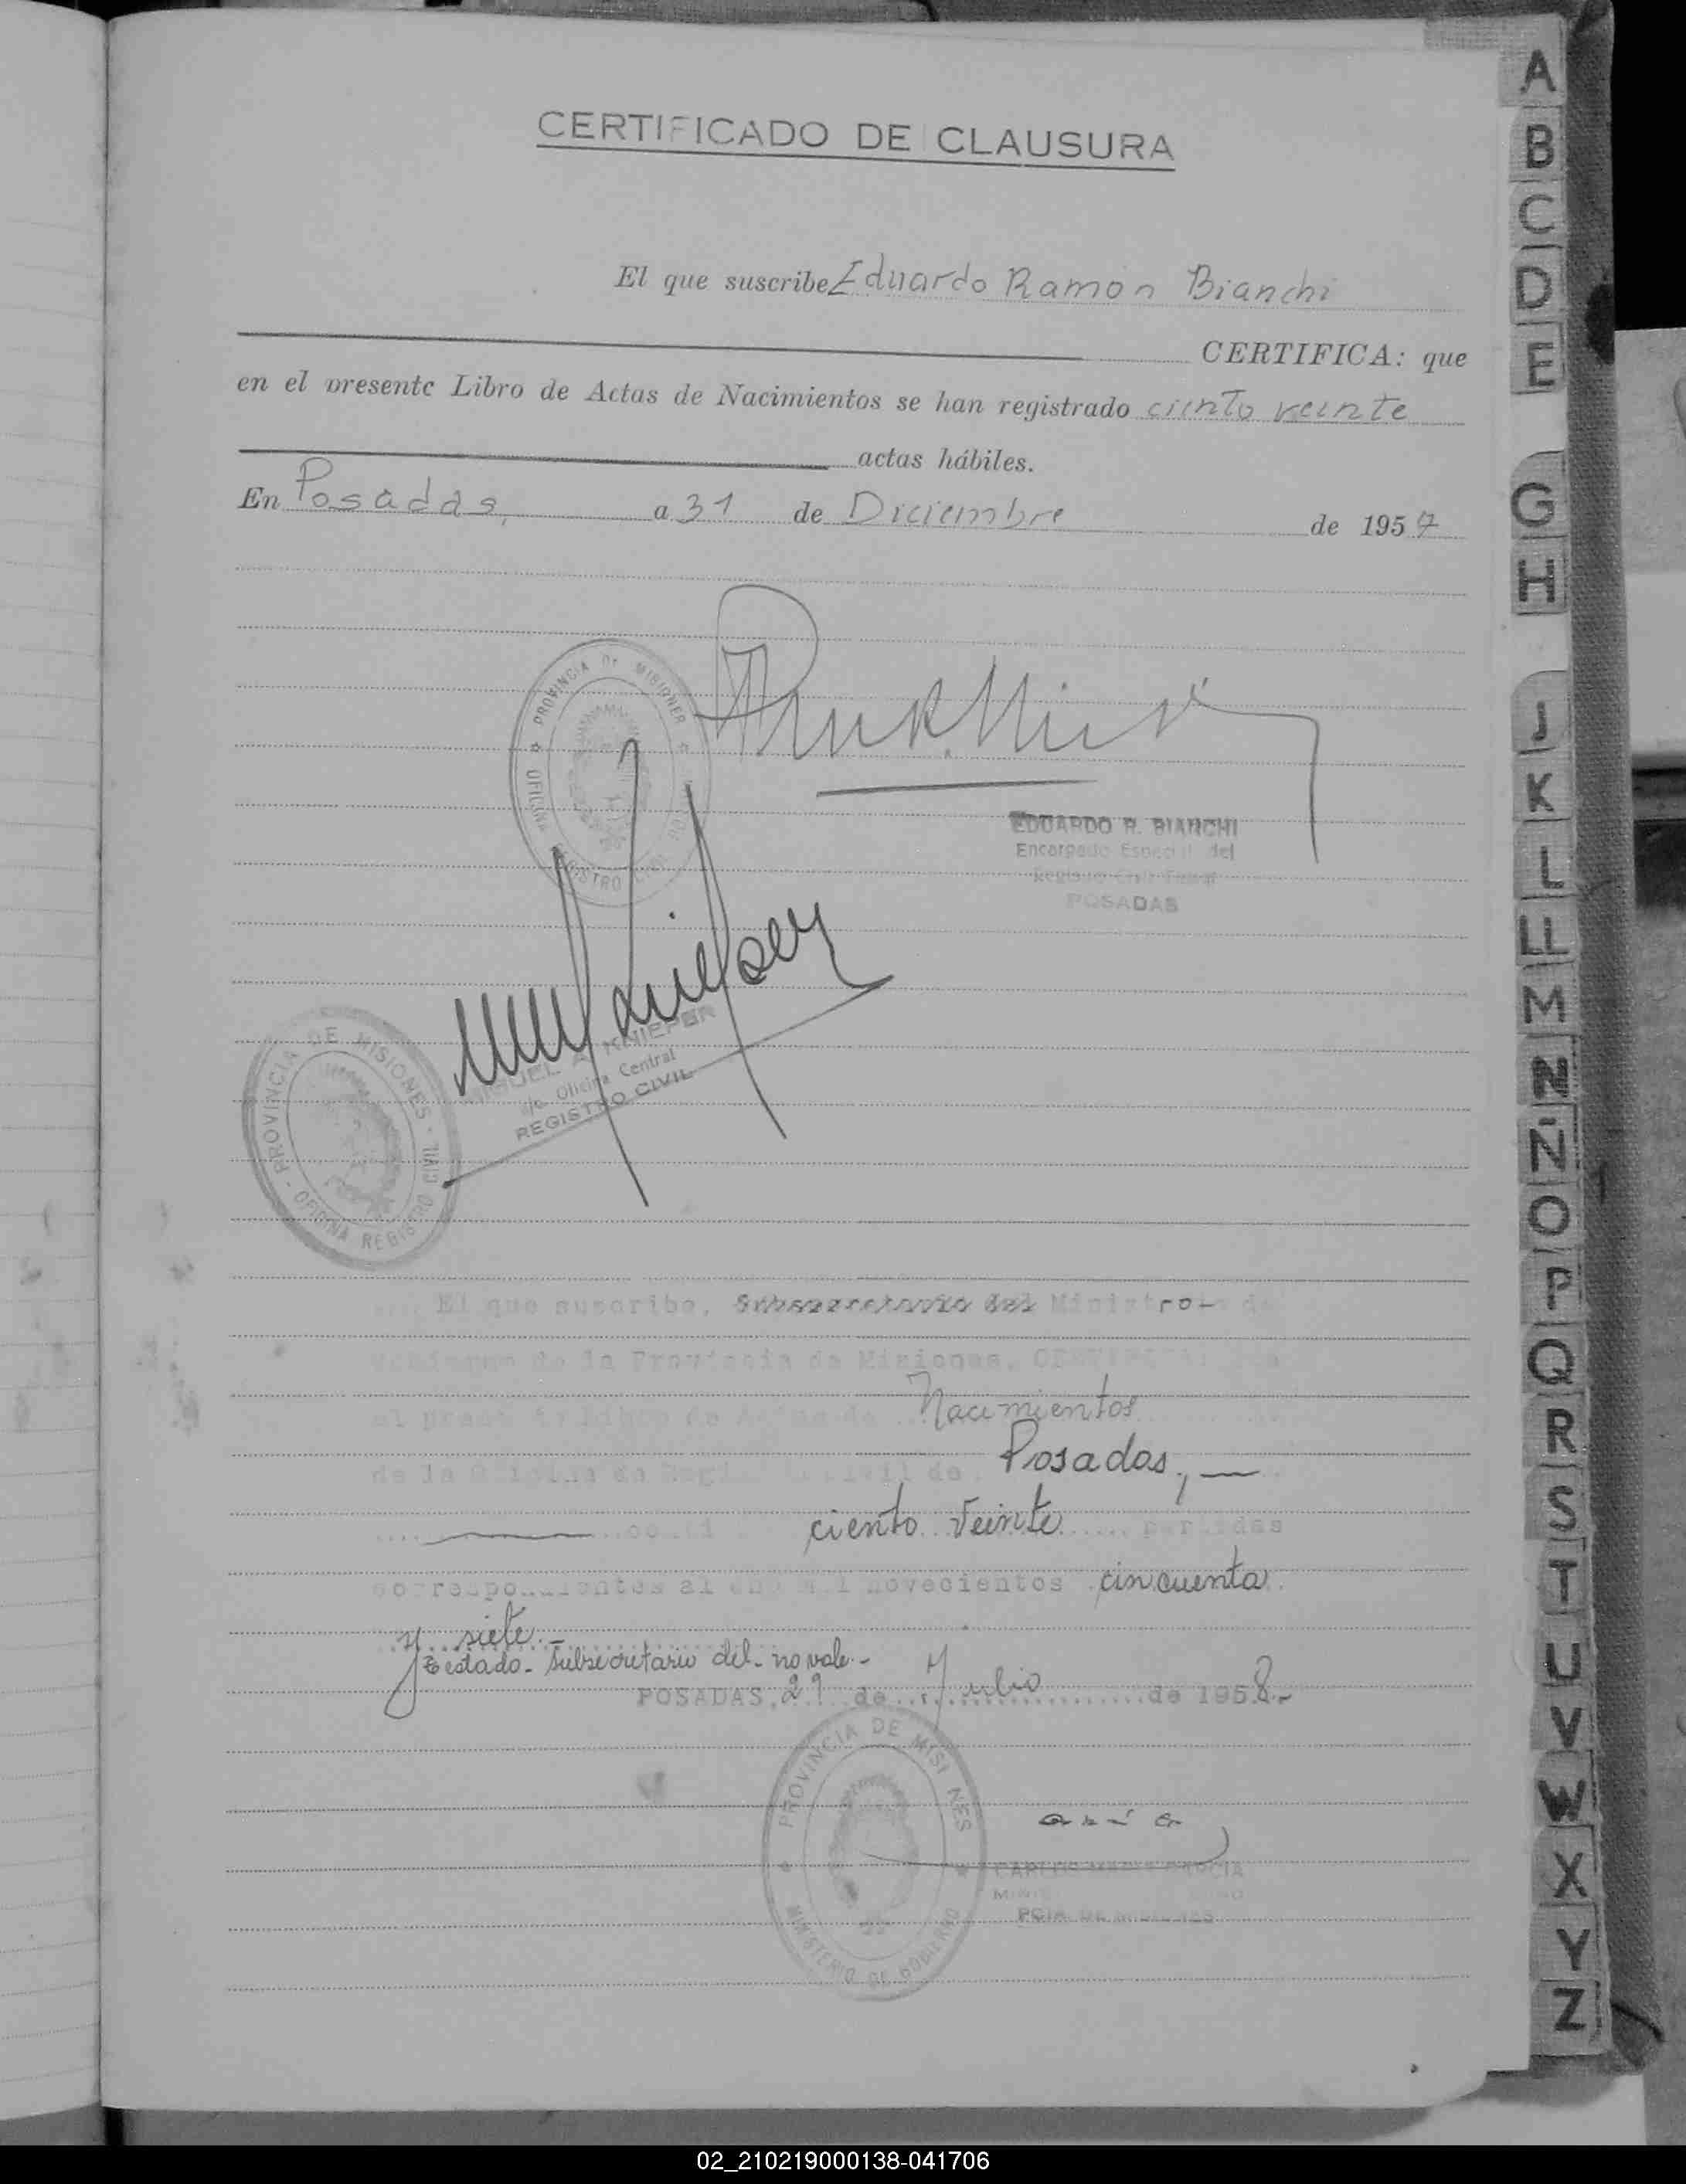 CERTIFICADO DE CLAUSURA
El que suscribe Eduardo Ramón Bianchi
CERTIFICA: que
en el presente Libro de Actas de Nacimientos se han registrado ciento veinte
actas hábiles.
En Posadas, a 31 de Diciembre de 1957
PROVINCIA DE MISIONES
OFICINA REGISTRO CIVIL
EDUARDO R. BIANCHI
Encargado Especial del
POSADAS
MIGUEL A. KNIEPER
Oficina Central
REGISTRO CIVIL
PROVINCIA DE MISIONES - OFICINA REGISTRO CIVIL
El que suscribe, Subsecretario del Ministro de
Gobierno de la Provincia de Misiones, CERTIFICA: que
el presente Libro de Actas de Nacimientos
de la Oficina de Registro Civil de Posadas,
ciento veinte partidas
correspondientes al año mil novecientos cincuenta
y siete.-
Testado- Subsecretario del- no vale.-
POSADAS, 29 de Julio de 1958.-
PROVINCIA DE MISIONES
MINISTERIO DE GOBIERNO
CARLOS MARIA GARCIA
PCIA DE MISIONES
A
B
C
D
E
G
H
J
K
L
LL
M
N
Ñ
O
P
Q
R
S
T
U
V
W
X
Y
Z
02_210219000138-041706